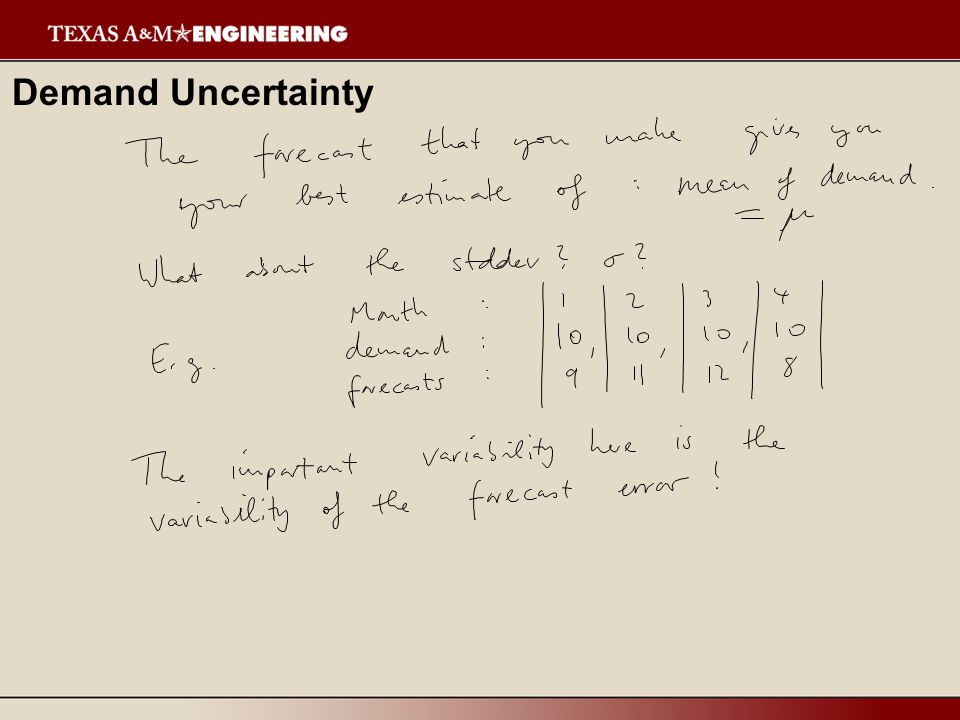 TEXAS A&M★ENGINEERING
Demand Uncertainty
The forecast that you make gives you
your best estimate of : mean of demand.
= μ
What about the stddev? σ?
Month : | 1 | 2 | 3 | 4 |
E.g. demand : | 10, | 10, | 10, | 10 |
forecasts : | 9 | 11 | 12 | 8 |
The important variability here is the
variability of the forecast error!